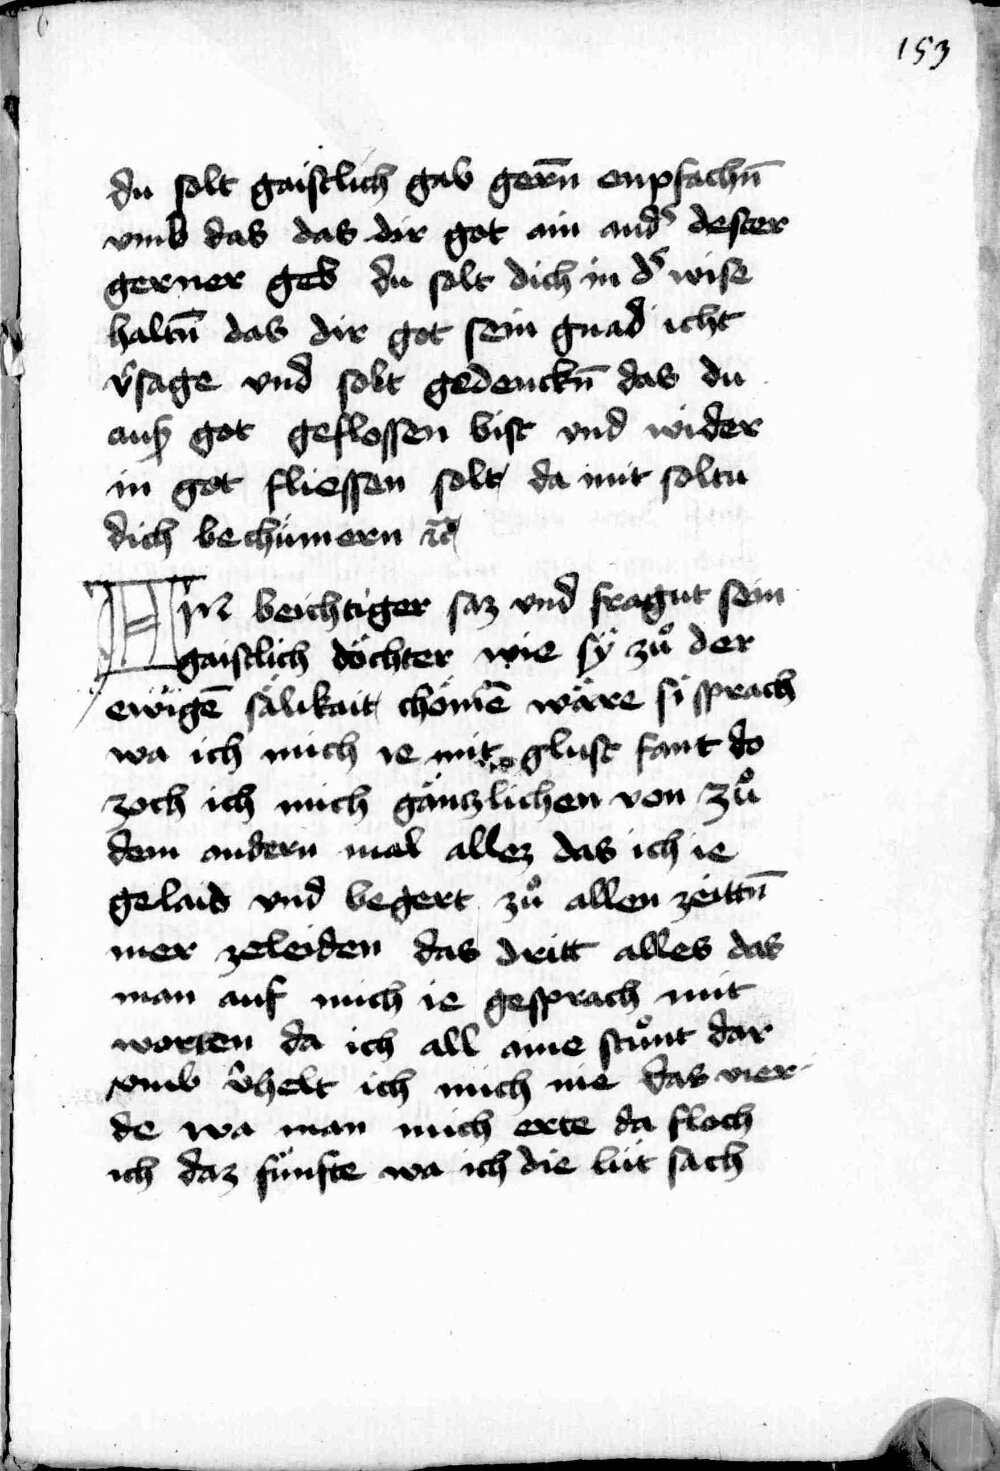 153
du solt gaistlich gab gern̄ enpfachn̄
vmb das das dir got ain and̾ dester
gerner geb du solt dich in d̾ wise
haltn̄ das dir got sein gnad icht
v̾sage vnd solt gedenckn̄ das du
auß got geflossen bist vnd wider
in got fliessen solt da mit soltu
dich bechümern ⁊c̄
AIn beichtiger saz vnd fragut sein
gaistlich döchter wie sÿ zuͦ der
ewigē sälikait chömē wäre si sprach
wa ich mich ie mit glust fant do
zoch ich mich gäntzlichen von zuͦ
dem andern mal allez das ich ie
gelaid vnd begert zuͦ allen zeittn̄
mer zeleiden das dritt alles das
man auf mich ie gesprach mit
worten da ich all aine stuͦnt dar
vmb v̾helt ich mich nie das vier-
de wa man mich erte da floch
ich daz fünfte wa ich die lüt sach